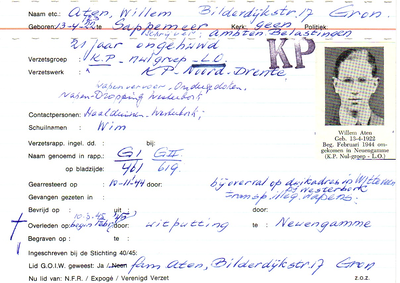 Naam etc.: Aten, Willem Bilderdijkstr. 17 Gron.
Geboren: 13-4-1922 te Sappemeer Kerk: geen Politiek:
Schrijver: ambten Belastingen
21 jaar ongehuwd
KP
Verzetsgroep : K.P. - nulgroep - L.O.
Verzetswerk : K.P. Noord-Drente
wapenvervoer, Onderduikers.
Wapen-Dropping
Contactpersonen:
Schuilnamen : Wim
Willem Aten
Geb. 13-4-1922
Beg. Februari 1944 om-
gekomen in Neuengamme
(K.P. Nul-groep - L.O.)
Verzetsrapp. ingel. dd. :
Naam genoemd in rapp.: G I G II
op bladzijde : 461 619
Gearresteerd op : 10-11-44 door: bij overval op duikadres in Witteveen
Gevangen gezeten in : bij Westerbork
Bevrijd op : uit door:
Overleden op: te : door: uitputting te : Neuengamme
Begraven op : te :
Ingeschreven bij de Stichting 40/45:
Lid G.O.I.W. geweest: Ja / Neen fam. Aten, Bilderdijkstr. 17 Gron
Nu lid van: N.F.R. / Expogé / Verenigd Verzet z.o.z.